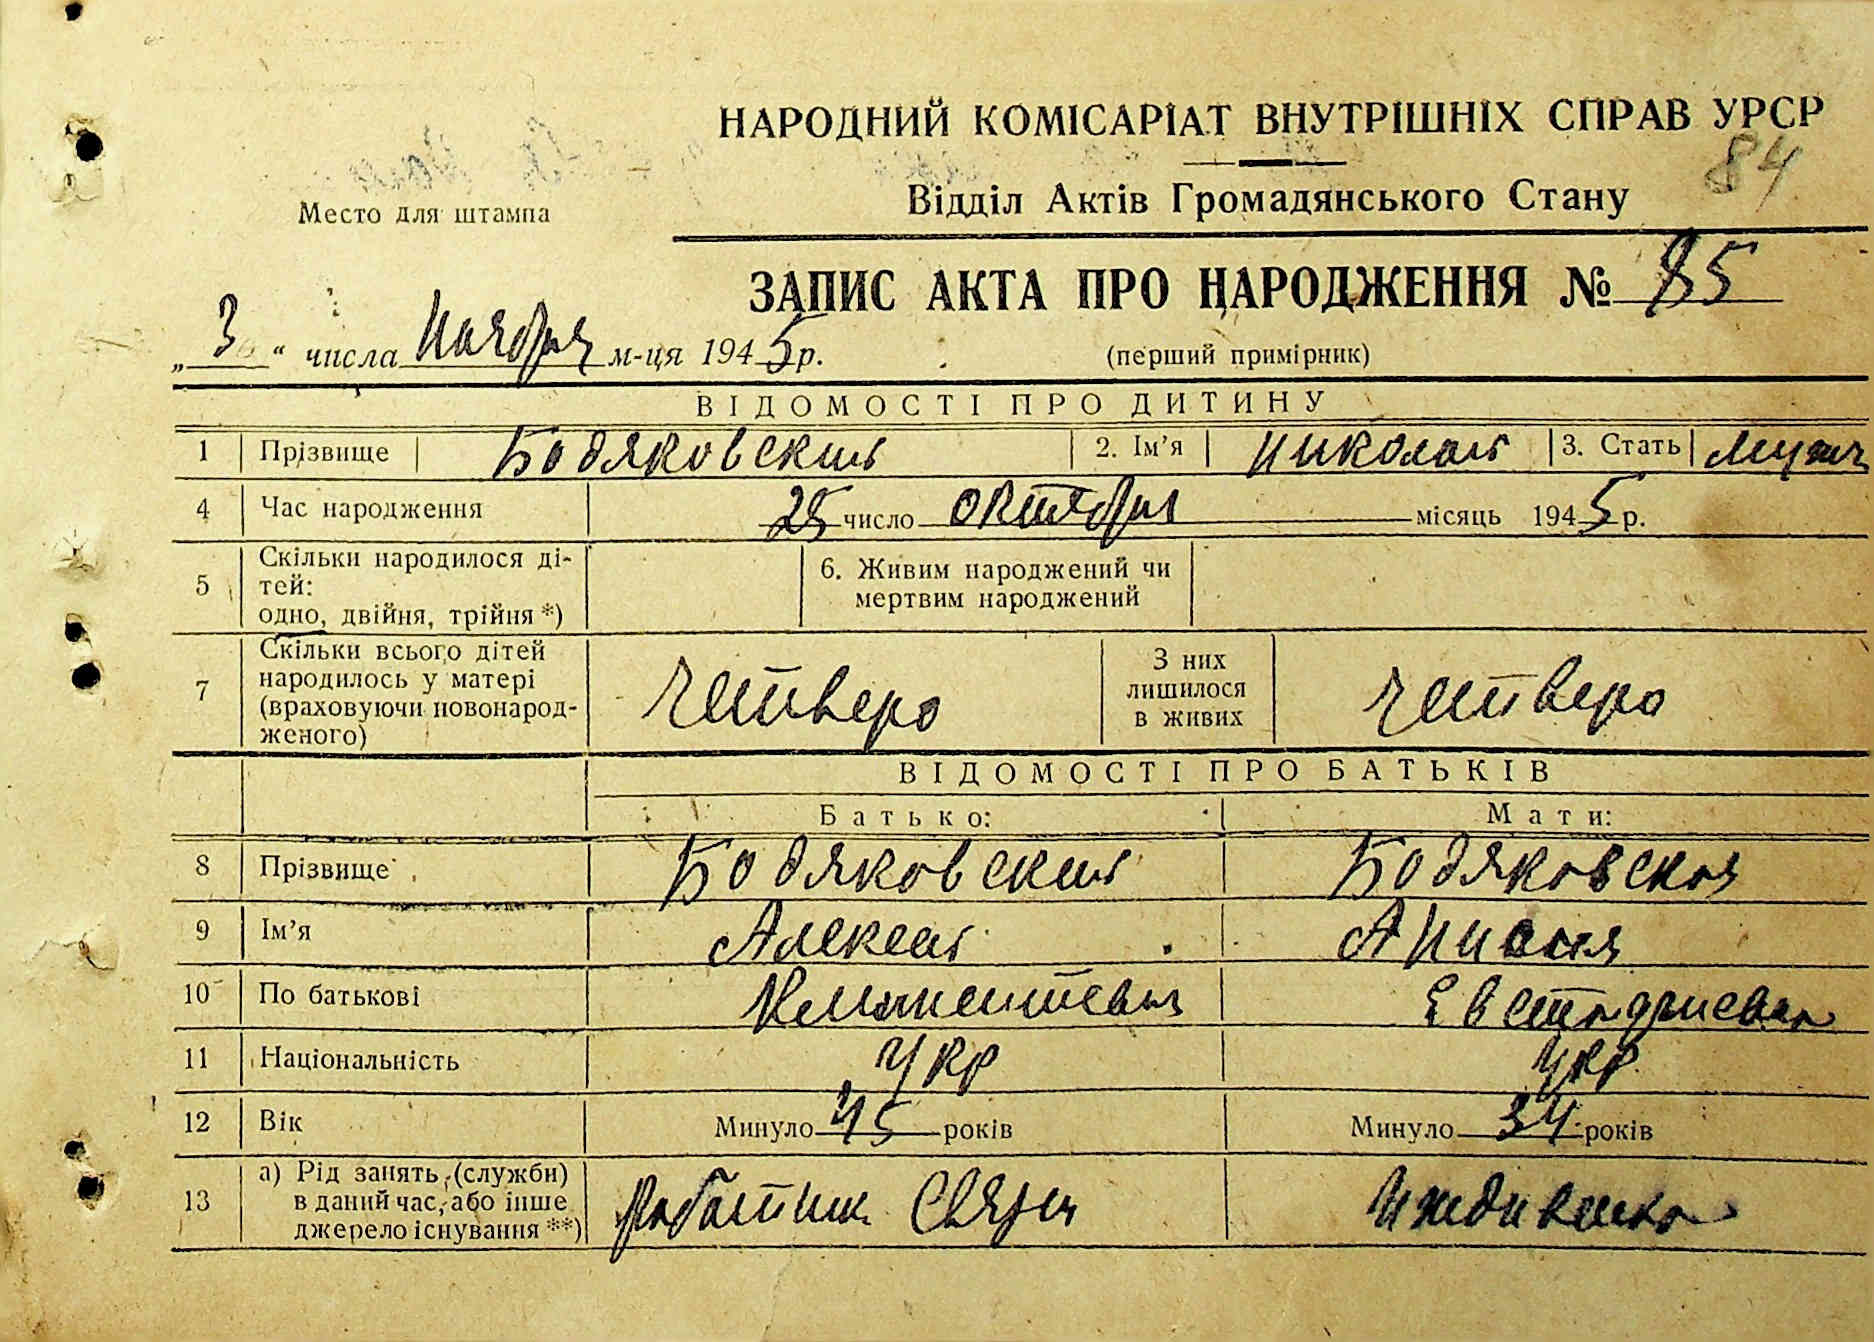 НАРОДНИЙ КОМІСАРІАТ ВНУТРІШНІХ СПРАВ УРСР
84
Место для штампа
Відділ Актів Громадянського Стану
ЗАПИС АКТА ПРО НАРОДЖЕННЯ № 85
„3“ числа Ноября м-ця 1945 р.
(перший примірник)
ВІДОМОСТІ ПРО ДИТИНУ
1 Прізвище Бодяковский 2. Ім'я Николай 3. Стать мужч
4 Час народження 25 число октября місяць 1945 р.
5 Скільки народилося ді-
тей:
одно, двійня, трійня *)
6. Живим народжений чи
мертвим народжений
7 Скільки всього дітей
народилось у матері
(враховуючи новонарод-
женого)
Четверо
З них
лишилося
в живих
Четверо
ВІДОМОСТІ ПРО БАТЬКІВ
Батько: Мати:
8 Прізвище Бодяковский Бодяковская
9 Ім'я Алексей Анисия
10 По батькові Климентевич
11 Національність Укр Укр
12 Вік Минуло 45 років Минуло 34 років
13 а) Рід занять (служби)
в даний час, або інше
джерело існування **)
работник Связи Иждивенка